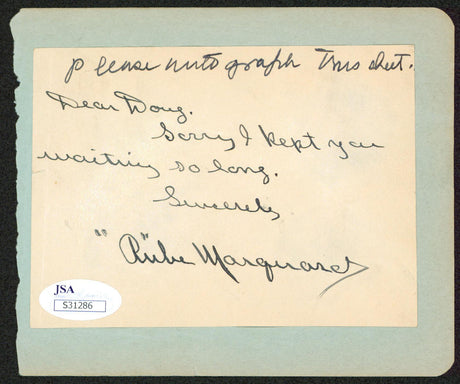 please autograph This sheet.
Dear Doug.
Sorry I kept you
waiting so long.
Sincerely
"Rube" Marquard
JSA
S31286